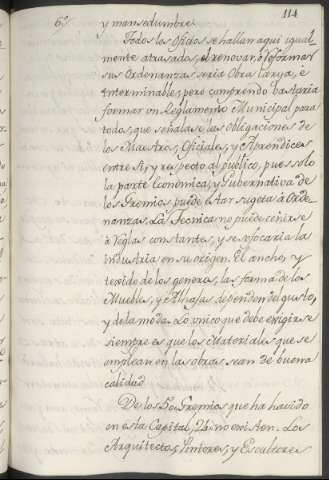 114
69
y mansedumbre.
Todos los Oficios se hallan aqui igual-
mente atrasados, el renovar, ò reformar
sus Ordenanzas seria Obra larga, è
interminable; pero comprendo bastaria
formar un Reglamento Municipal para
todos, que señalase las Obligaciones de
los Maestros, Oficiales, y Aprendices
entre sì, y respecto al publico, pues solo
la parte Economica, y Gubernativa de
los Gremios puede estar sugeta à Orde-
nanzas. La Tecnica no puede ceñirse
à Reglas constantes, y se sofocaria la
industria en su origen. El ancho, y
texido de los generos, las formas de los
Muebles, y Alhajas dependen del gusto,
y de la moda. Lo unico que debe exigirse
siempre es que los Materiales que se
emplean en las obras sean de buena
calidad.
De los 50 Gremios que ha havido
en esta Capital, 24 no existen. Los
Arquitectos, Pintores, y Escultores